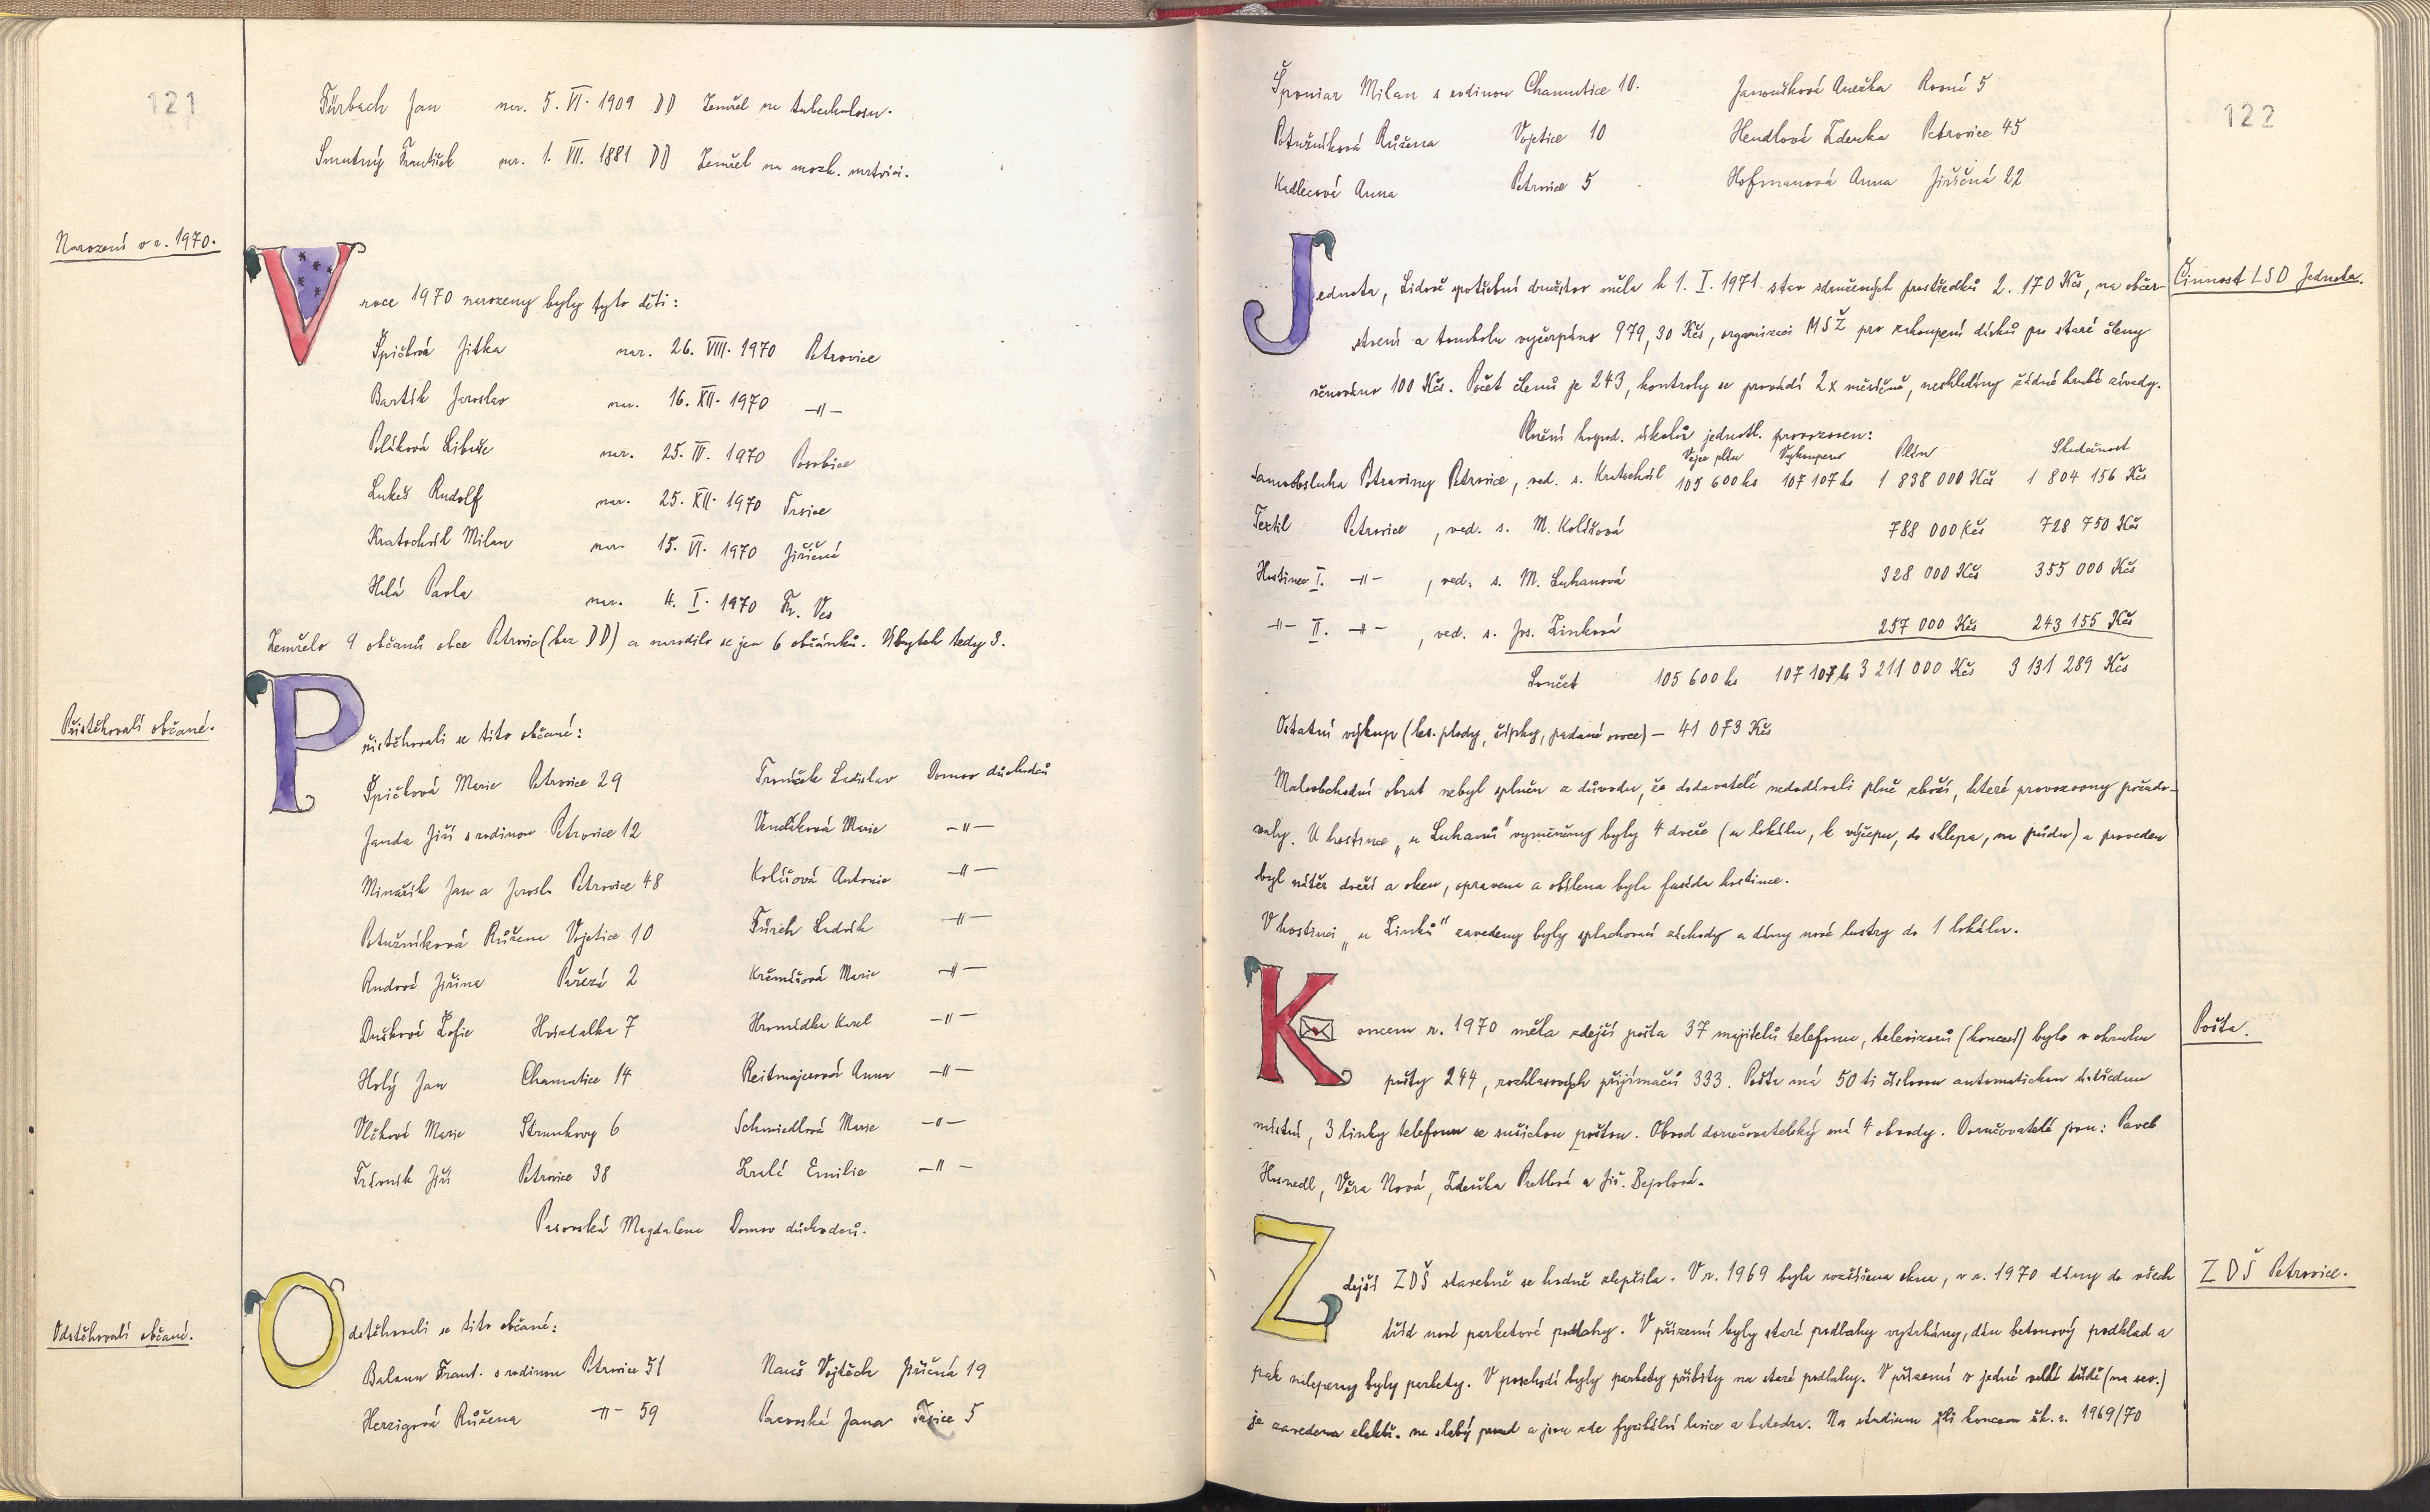 121
Fürbach Jan nar. 5. VI. 1909 DD Zemřel na tuberkulosu.
Smutný František nar. 1. VII. 1881 DD Zemřel na mozk. mrtvici.
Narození v r. 1970.
V roce 1970 narozeny byly tyto děti:
Špičková Jitka nar. 26. VIII. 1970 Petrovice
Bartík Jaroslav nar. 16. XII. 1970 -"-
Poláková Libuše nar. 25. IV. 1970 Posobice
Lukeš Rudolf nar. 25. XII. 1970 Trsice
Kratochvíl Milan nar. 15. VI. 1970 Jiřičná
Hilá Pavla nar. 4. I. 1970 Fr. Ves
Zemřelo 9 občanů obce Petrovic (bez DD) a narodilo se jen 6 občánků. Úbytek tedy 3.
Přistěhovalí občané.
Přistěhovali se tito občané:
Špičková Marie Petrovice 29 Troníček Ladislav Domov důchodců
Janda Jiří s rodinou Petrovice 12 Vendíková Marie -"-
Minařík Jan a Jarosl. Petrovice 48 Kolářová Antonie -"-
Potužníková Růžena Vojetice 10 Fürich Ludvík -"-
Rudová Jiřina Pařezí 2 Krčmářová Marie -"-
Dušková Žofie Hvízdalka 7 Hromádka Karel -"-
Holý Jan Chamutice 14 Reitmajerová Anna -"-
Vlčková Marie Strunkovy 6 Schmiedlová Marie -"-
Trávník Jiří Petrovice 38 Zralá Emilie -"-
Pasovská Magdalena Domov důchodců.
Odstěhovalí občané.
Odstěhovali se tito občané:
Balaun Frant. s rodinou Petrovice 51 Nauš Vojtěch Jiřičná 19
Herzigová Růžena -"- 59 Pasovská Jana Trsice 5
122
Šponiar Milan s rodinou Chamutice 10. Janoušková Anežka Rovná 5
Potužníková Růžena Vojetice 10 Hendlová Zdenka Petrovice 45
Kadlecová Anna Petrovice 5 Hofmanová Anna Jiřičná 22
Činnost LSD Jednota.
Jednota, Lidové spotřební družstvo měla k 1. I. 1971 stav sdružených prostředků 2. 170 Kčs, na občer-
stvení a tombolu vyčerpáno 979,30 Kčs, organizaci MSŽ pro zakoupení dárků pro staré členy
věnováno 100 Kčs. Počet členů je 243, kontroly se provádí 2x měsíčně, neshledány žádné hrubé závady.
Plnění hospod. úkolů jednotl. provozoven:
Vejce plán Vykoupeno Plán Skutečnost
Samoobsluha Potraviny Petrovice, ved. s. Kratochvíl 105 600 ks 107 107 ks 1 838 000 Kčs 1 804 156 Kčs
Textil Petrovice, ved. s. M. Kolářová 788 000 Kčs 728 750 Kčs
Hostinec I. -"-, ved. s. M. Luhanová 328 000 Kčs 355 000 Kčs
-"- II. -"-, ved. s. Jos. Zinková 257 000 Kčs 243 155 Kčs
Součet 105 600 ks 107 107 ks 3 211 000 Kčs 3 131 289 Kčs
Ostatní výkup (les. plody, šípky, padané ovoce) – 41 073 Kčs
Maloobchodní obrat nebyl splněn z důvodu, že dodavatelé nedodávali plně zboží, které provozovny požado-
valy. U hostince „u Luhanů" vyměněny byly 4 dveře (u lokálu, k výčepu, do sklepa, na půdu) a proveden
byl nátěr dveří a oken, opravena a obílena byla fasáda hostince.
V hostinci „u Zinků" zavedeny byly splachovací záchody a dány nové lustry do 1 lokálu.
Pošta.
Koncem r. 1970 měla zdejší pošta 37 majitelů telefonu, televizorů (koncesí) bylo v okruhu
pošty 244, rozhlasových přijímačů 393. Pošta má 50 ti číslovou automatickou ústřednu
místní, 3 linky telefonu se sušickou poštou. Obvod doručovatelský má 4 obvody. Doručovatelé jsou: Pavel
Hosnedl, Věra Nová, Zdeňka Pretlová a Jiř. Bejvlová.
ZDŠ Petrovice.
Zdejší ZDŠ stavebně se hodně zlepšila. V r. 1969 byla rozšířena okna, v r. 1970 dány do všech
tříd nové parketové podlahy. V přízemí byly staré podlahy vytrhány, dán betonový podklad a
pak nalepeny byly parkety. V poschodí byly parkety přibity na staré podlahy. V přízemí v jedné velké třídě (na sev.)
je zavedena elektř. na slabý proud a jsou zde fyzikální lavice a katedra. Na studium šli koncem šk. r. 1969/70